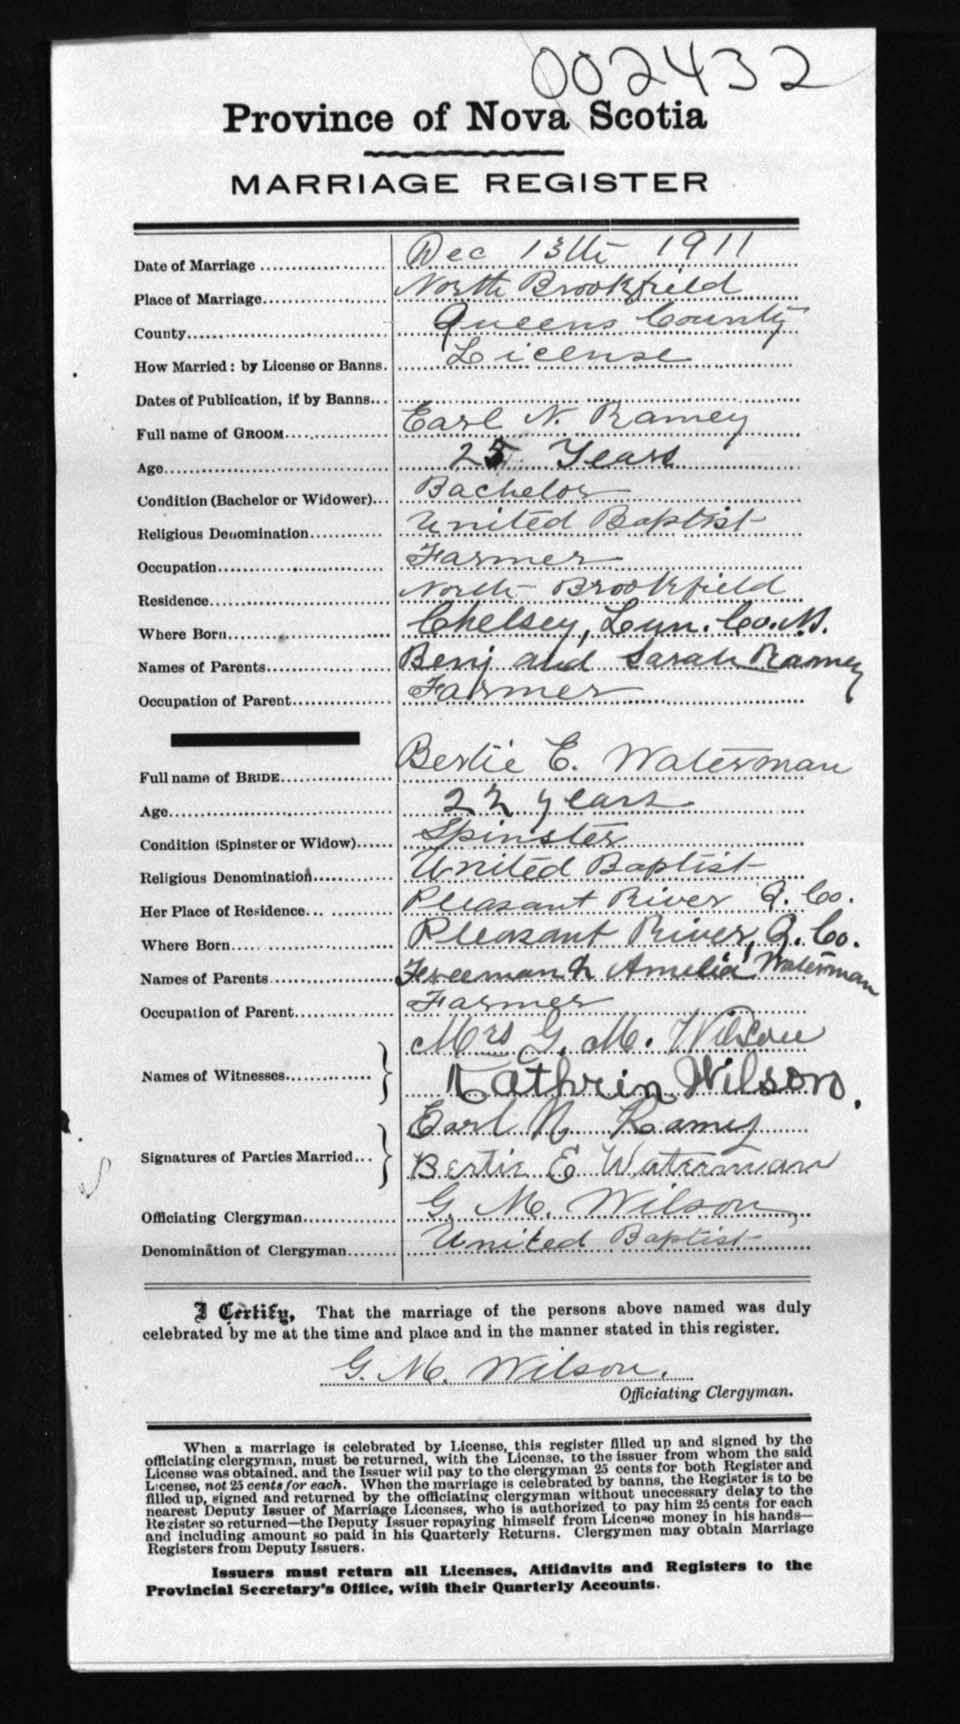 002432
Province of Nova Scotia
MARRIAGE REGISTER
Date of Marriage Dec 13th 1911
Place of Marriage North Brookfield
County Queens County
How Married: by License or Banns. License
Dates of Publication, if by Banns
Full name of GROOM Earl N. Ramey
Age 25 Years
Condition (Bachelor or Widower) Bachelor
Religious Denomination United Baptist
Occupation Farmer
Residence North Brookfield
Where Born Chelsey, Lun. Co. N.S.
Names of Parents Benj and Sarah Ramey
Occupation of Parent Farmer
Full name of BRIDE Bertie E. Waterman
Age 22 years
Condition (Spinster or Widow) Spinster
Religious Denomination United Baptist
Her Place of Residence Pleasant River Q. Co.
Where Born Pleasant River, Q. Co.
Names of Parents Freeman & Amelia Waterman
Occupation of Parent Farmer
Mrs G. M. Wilson
Names of Witnesses Kathrin Wilson.
Earl N Ramey
Signatures of Parties Married Bertie E Waterman
Officiating Clergyman G. M. Wilson
Denomination of Clergyman United Baptist
I Certify, That the marriage of the persons above named was duly
celebrated by me at the time and place and in the manner stated in this register.
G. M. Wilson.
Officiating Clergyman.
When a marriage is celebrated by License, this register filled up and signed by the
officiating clergyman, must be returned, with the License, to the issuer from whom the said
License was obtained, and the Issuer will pay to the clergyman 25 cents for both Register and
License, not 25 cents for each. When the marriage is celebrated by banns, the Register is to be
filled up, signed and returned by the officiating clergyman without unnecessary delay to the
nearest Deputy Issuer of Marriage Licenses, who is authorized to pay him 25 cents for each
Register so returned—the Deputy Issuer repaying himself from License money in his hands—
and including amount so paid in his Quarterly Returns. Clergymen may obtain Marriage
Registers from Deputy Issuers.
Issuers must return all Licenses, Affidavits and Registers to the
Provincial Secretary's Office, with their Quarterly Accounts.